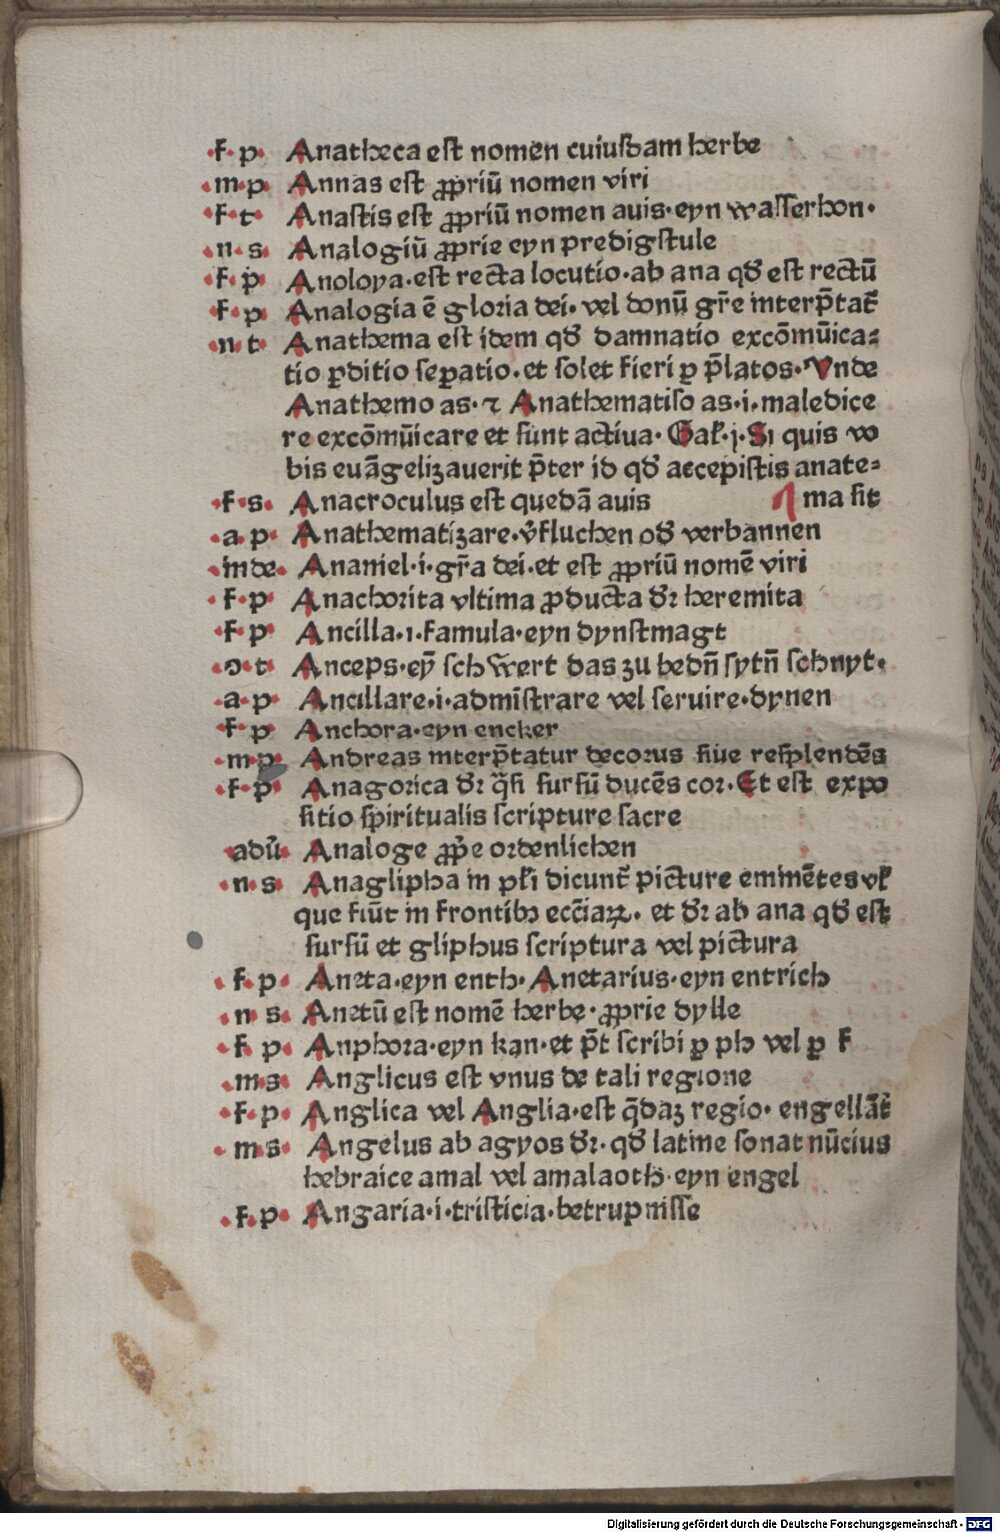 ·f·p· Anatheca est nomen cuiusdam herbe
·m·p· Annas est ꝓpriū nomen viri
·f·t· Anastis est ꝓpriū nomen auis·eyn wasserhon·
·n·s· Analogiū ꝓprie eyn predigstule
·f·p· Anoloya·est recta locutio·ab ana qđ est rectū
·f·p· Analogia ē gloria dei·vel donū gr̄e interp̄tat᷑
·n·t· Anathema est idem qđ damnatio excōmūica⸗
tio ꝑditio seꝑatio·et solet fieri ꝑ p̄latos·Vnde
Anathemo as·⁊ Anathematiso as·i·maledice
re excōmūicare et sunt actiua·Gak·j·Si quis vo
bis euāgelizauerit p̄ter id qđ accepistis anate⸗
·f·s· Anacroculus est quedā auis ¶ ma sit
·a·p· Anathematizare·v̓fluchen ođ verbannen
·inde· Ananiel·i·gr̄a dei·et est ꝓpriū nomē viri
·f·p· Anachorita vltima ꝓducta đr heremita
·f·p· Ancilla·i·famula·eyn dynstmagt
·o·t· Anceps·eȳ schwert das zu bedn̄ sytn̄ schnyt·
·a·p· Ancillare·i·admīstrare vel seruire·dynen
·f·p· Anchora·eyn encker
·m·p· Andreas interp̄tatur decorus siue resplendēs
·f·p· Anagorica đr q̄si sursū ducēs cor·Et est expo
sitio spiritualis scripture sacre
·adū· Analoge ꝓp̓e ordenlichen
·n·s· Anaglipha in pl̄i dicunt᷑ picture eminētes vl̓
que fiūt in frontibꝫ ecc̄iaꝝ· et đr ab ana qđ est
sursū et gliphus scriptura vel pictura
·f·p· Aneta·eyn enth·Anetarius·eyn entrich
·n·s· Anetū est nomē herbe·ꝓprie dylle
·f·p· Anphora·eyn kan·et p̄t scribi ꝑ ph vel ꝑ f
·m·s· Anglicus est vnus de tali regione
·f·p· Anglica vel Anglia·est q̄daꝫ regio·engellāt
·m·s· Angelus ab agyos đr·qđ latine sonat nūcius
hebraice amal vel amalaoth·eyn engel
·f·p· Angaria·i·tristicia·betrupnisse
Digitalisierung gefördert durch die Deutsche Forschungsgemeinschaft - DFG